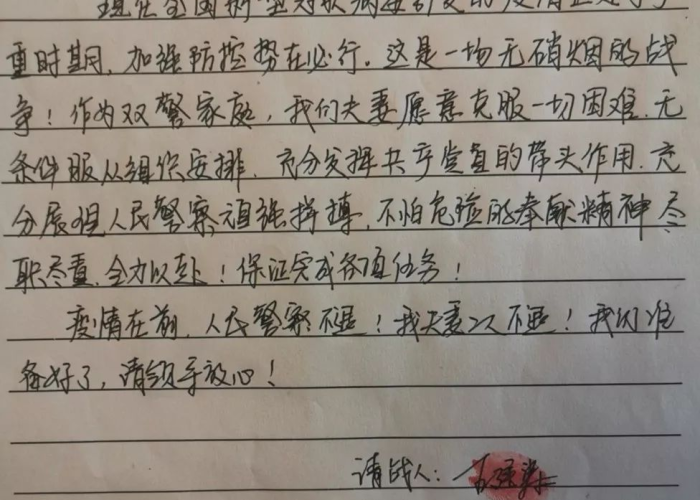 现在全国新型冠状病毒引发的疫情正处于
重时期，加强防控势在必行。这是一场无硝烟的战
争！作为双警家庭，我们夫妻愿意克服一切困难，无
条件服从组织安排，充分发挥共产党员的带头作用，充
分展现人民警察顽强拼搏，不怕危险的奉献精神尽
职尽责，全力以赴！保证完成各项任务！
疫情在前，人民警察不退！我夫妻二人不退！我们准
备好了，请领导放心！
请战人：